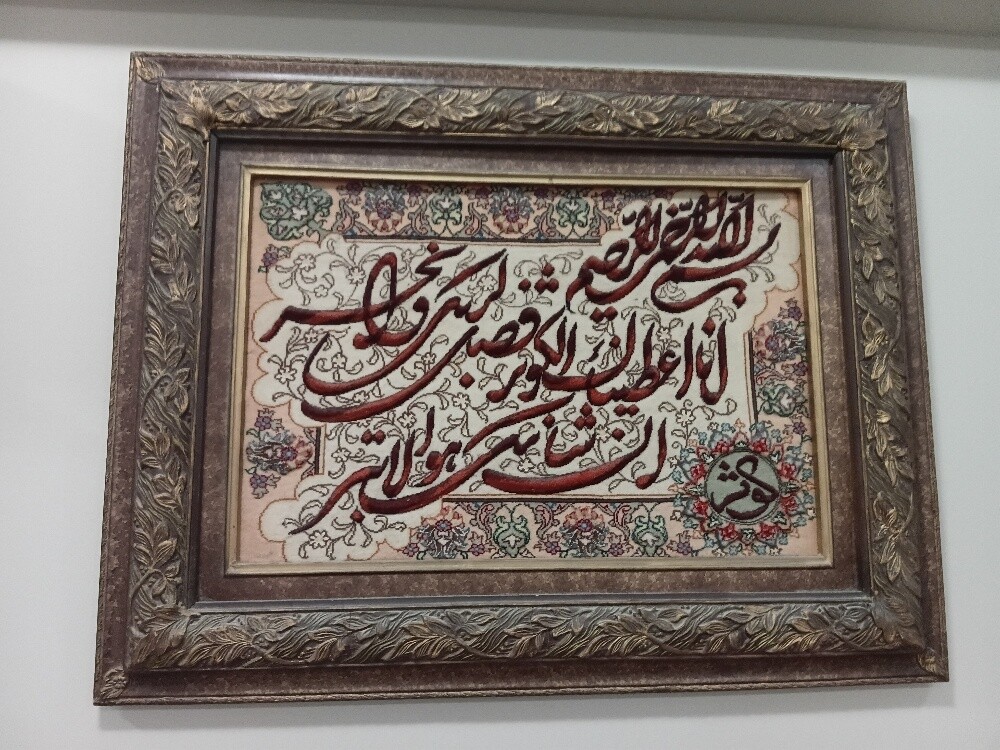 بسم الله الرحمن الرحیم
انا اعطیناک الکوثر فصل لربک وانحر
ان شانئک هو الابتر
کوثر